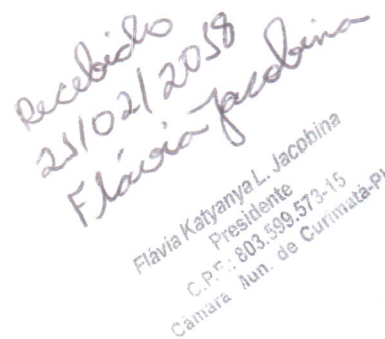 Recebido
21/02/2018
Flávia Jacobina
Flávia Katyanya L. Jacobina
Presidente
C.P.F.: 803.599.573-15
Câmara Mun. de Curimatá-PI